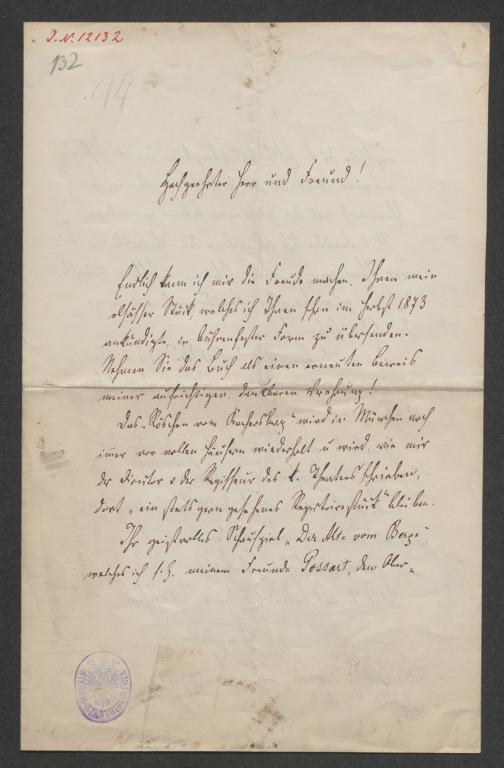 J.N. 12132
132
94
Hochgeehrter Herr und Freund!
Endlich kann ich mir die Freude machen, Ihnen mein
elsässer Stück, welches ich Ihnen schon im Herbst 1873
ankündigte, in bühnenfester Form zu übersenden.
Nehmen Sie das Buch als einen erneuten Beweis
meiner aufrichtigen, dankbaren Verehrung!
Das „Röschen vom Kochersberg" wird in München noch
immer vor vollen Häusern wiederholt u wird, wie mir
der Director u der Regisseur des k. Theaters schrieben,
dort „ein stets gern gesehenes Repertoirestück" bleiben.
Ihr geistvolles Schauspiel „Der Alte vom Berge",
welches ich s. Z. meinem Freunde Possart, dem Ober-